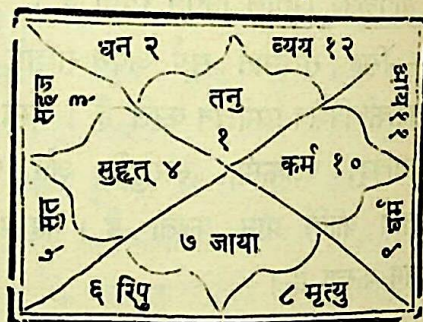 धन २
व्यय १२
सहज ३
तनु १
आय ११
सुहृत् ४
कर्म १०
५ सुत
धर्म ९
७ जाया
६ रिपु
८ मृत्यु